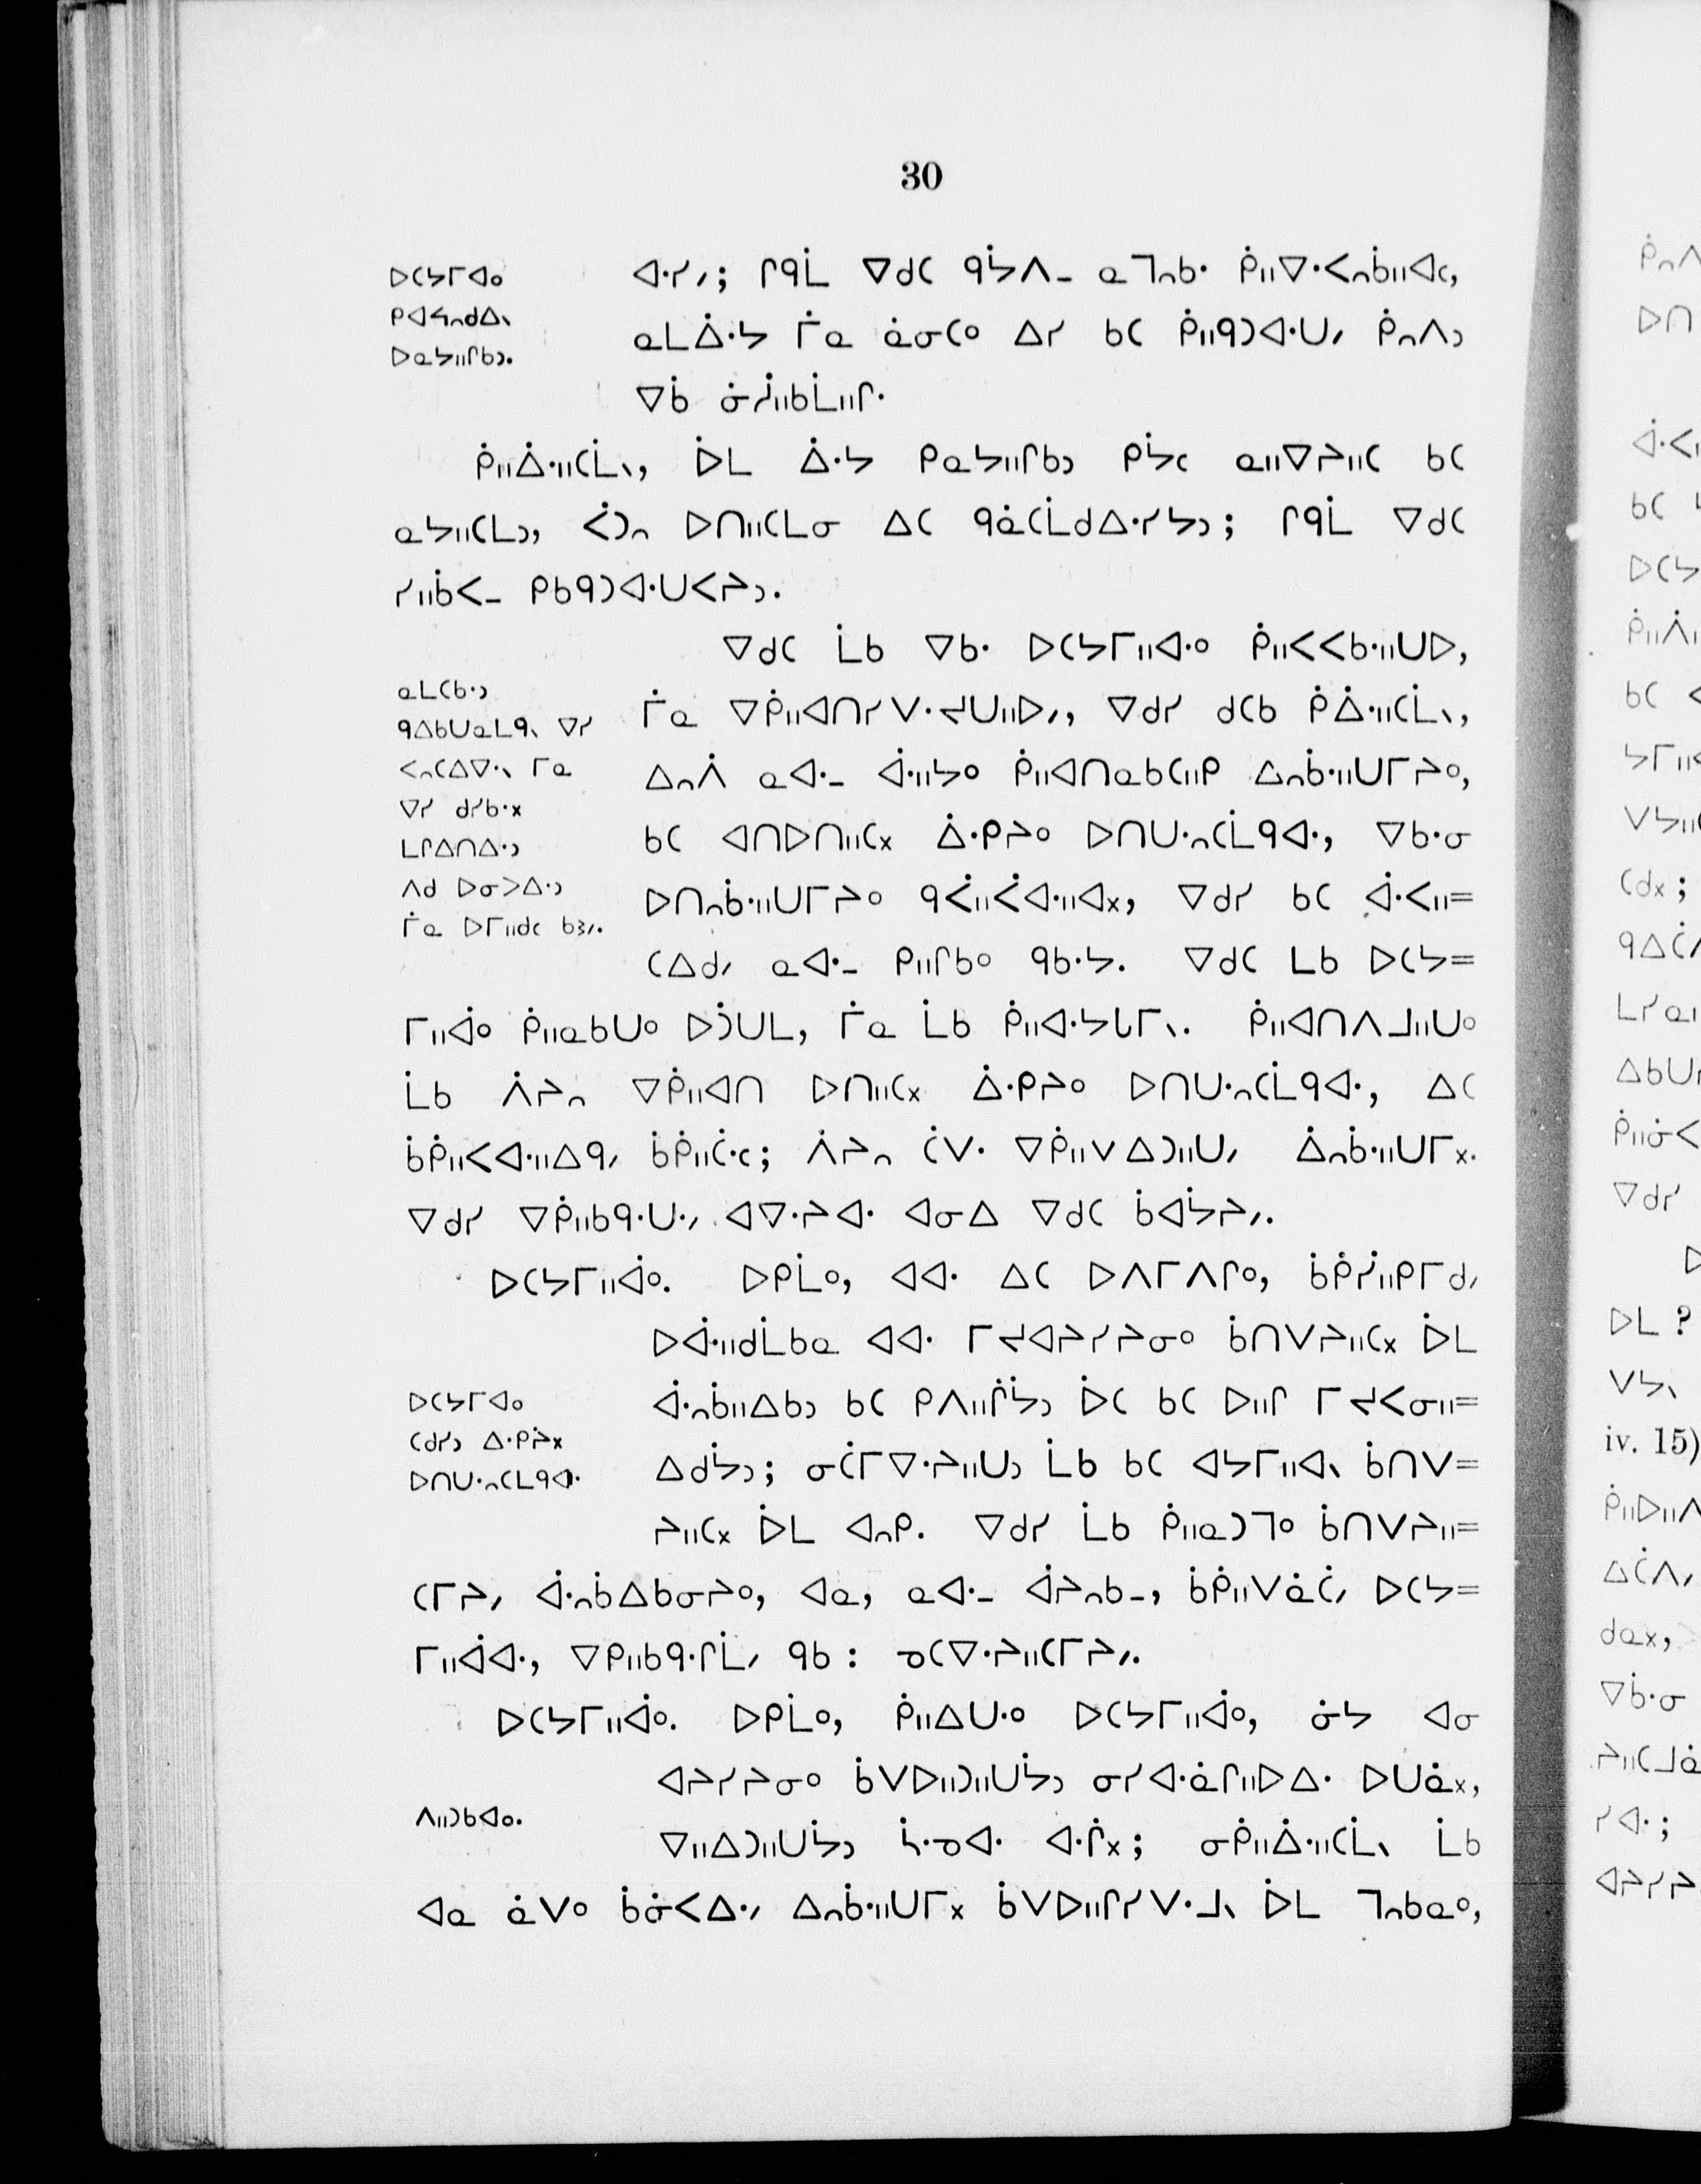 30
ᐅᑕᔭᒥᐊᐤ
ᑭᐊᓴᐢᑯᐃᐠ
ᐅᓇᔭᐦᒋᑲᐣ.
ᐊᐧᓯᐟ; ᒋᑫᒫ ᐁᑯᑕ ᑫᔮᐱ⁻ ᓇᒣᐢᑲᐧ ᑮᐦᐁᐧᐸᐢᑳᐦᐊᑦ,
ᓇᒪᐄᐧᔭ ᒦᓇ ᓈᓂᑕᐤ ᐃᓯ ᑲᑕ ᑮᐦᑫᑐᐊᐧᑌᐟ ᑮᐢᐱᐣ
ᐁᑳ ᓃᓰᐦᑲᒫᐦᒋ.
ᑮᐦᐄᐧᐦᑕᒫᐠ, ᐆᒪ ᐄᐧᔭ ᑭᓇᔭᐦᒋᑲᐣ ᑭᔮᑦ ᓇᐦᐁᔨᐦᑕ ᑲᑕ
ᓇᔭᐦᑕᒪᐣ, ᐹᑐᐢ ᐅᑎᐦᑕᒪᓂ ᐃᑕ ᑫᓈᑕᒫᑯᐃᐧᓯᔭᐣ; ᒋᑫᒫ ᐁᑯᑕ
ᓯᐦᑳᐸ⁻ ᑭᑲᑫᑐᐊᐧᑌᐸᔨᐣ.
ᐁᑯᑕ ᒫᑲ ᐁᑲᐧ ᐅᑕᔭᒥᐦᐊᐧᐤ ᑮᐦᐸᐸᑲᐧᐦᑌᐅ,
ᓇᒪᑕᑲᐧᐣ
ᑫᐃᑲᑌᓇᒪᑫᐠ ᐁᓯ
ᐸᐢᑕᐃᐁᐧᐠ ᒥᓇ
ᐁᓯ ᑯᓯᑲᐧᕽ
ᒪᒋᐃᑎᐃᐧᐣ
ᐱᑯ ᐅᓂᐳᐃᐧᐣ
ᒦᓇ ᐅᒥᐦᑯᑦ ᑲᔒᐟ.
ᒦᓇ ᐁᑮᐦᐊᑎᓯᐯᐧᔪᑌᐦᐅᐟ, ᐁᑯᓯ ᑯᑕᑲ ᑮᐄᐧᐦᑕᒫᐠ,
ᐃᐢᐲ ᓇᐊᐧ⁻ ᐋᐧᐦᔭᐤ ᑮᐦᐊᑎᓇᑲᑕᐦᑭ ᐃᐢᒁᐦᑌᒥᔨᐤ,
ᑲᑕ ᐊᑎᐅᑎᐦᑕᕽ ᐄᐧᑭᔨᐤ ᐅᑎᑌᐧᐢᑕᒫᑫᐊᐧ, ᐁᑲᐧᓂ
ᐅᑎᐢᒁᐦᑌᒥᔨᐤ ᑫᐹᐦᐹᐊᐧᐦᐊᕽ, ᐁᑯᓯ ᑲᑕ ᐋᐧᐸᐦ=
ᑕᐃᑯᐟ ᓇᐊᐧ⁻ ᑭᐦᒋᑲᐤ ᑫᑲᐧᔭ. ᐁᑯᑕ ᒪᑲ ᐅᑕᔭ=
ᒥᐦᐋᐤ ᑮᐦᓇᑲᑌᐤ ᐅᑑᑌᒪ, ᒦᓇ ᒫᑲ ᑮᐦᐊᐧᔭᔕᒥᐠ. ᑮᐦᐊᑎᐱᒧᐦᑌᐤ
ᒫᑲ ᐲᔨᐢ ᐁᑮᐦᐊᑎ ᐅᑎᐦᑕᕽ ᐄᐧᑭᔨᐤ ᐅᑎᑌᐧᐢᑕᒫᑫᐊᐧ, ᐃᑕ
ᑳᑮᐦᐸᐊᐧᐦᐃᑫᐟ ᑳᑮᐦᑖᐧᑦ; ᐲᔨᐢ ᑖᐯᐧ ᐁᑮᐦᐯᐃᑐᐦᑌᐟ ᐄᐢᒁᐦᑌᒥᕽ.
ᐁᑯᓯ ᐁᑮᐦᑲᑫᐧᑌᐧᐟ ᐊᐁᐧᔨᐊᐧ ᐊᓂᐃ ᐁᑯᑕ ᑳᐊᔮᔨᐟ.
ᐅᑕᔭᒥᐦᐋᐤ. ᐅᑭᒫᐤ, ᐊᐊᐧ ᐃᑕ ᐅᐱᒥᐱᒋᐤ, ᑳᑮᓰᐦᑭᒥᑯᐟ
ᐅᐋᐧᐦᑯᒫᑲᓇ ᐊᐊᐧ ᒥᔪᐊᔨᓯᔨᓂᐤ ᑳᑎᐯᔨᐦᑕᕽ ᐆᒪ
ᐅᑕᔭᒥᐊᐤ
ᑕᑯᓯᐣ ᐃᐧᑭᔩᕽ
ᐅᑎᑌᐧᐢᑕᒪᑫᐊᐧ.
ᐋᐧᐢᑳᐦᐃᑲᐣ ᑲᑕ ᑭᐱᐦᒌᔮᐣ ᐆᑕ ᑲᑕ ᐅᐦᒋ ᒥᔪᐸᓂᐦ=
ᐃᑯᔮᐣ; ᓂᑖᒥᐁᐧᔨᐦᑌᐣ ᒫᑲ ᑲᑕ ᐊᔭᒥᐦᐊᐠ ᑳᑎᐯ=
ᔨᐦᑕᕽ ᐆᒪ ᐊᐢᑭ. ᐁᑯᓯ ᒫᑲ ᑮᐦᓇᑐᒣᐤ ᑳᑎᐯᔨᐦ=
ᑕᒥᔨᐟ ᐋᐧᐢᑳᐃᑲᓂᔨᐤ, ᐊᓇ, ᓇᐊᐧ⁻ ᐋᔨᐢᑲ⁻, ᑳᑮᐦᐯᓈᑖᐟ ᐅᑕᔭ=
ᒥᐦᐋᐊᐧ, ᐁᑭᐦᑲᑫᐧᒋᒫᐟ ᑫᑲ : ᓄᑕᐁᐧᔨᐦᑕᒥᔨᐟ.
ᐅᑕᔭᒥᐦᐋᐤ. ᐅᑭᒫᐤ, ᑮᐦᐃᑌᐧᐤ ᐅᑕᔭᒥᐦᐋᐤ, ᓃᔭ ᐊᓂ
ᐊᔨᓯᔨᓂᐤ ᑳᐯᐅᐦᑐᐦᑌᔮᐣ ᓂᓯᐊᐧᓈᒋᐦᐅᐃᐧ ᐅᑌᓈᕽ,
ᐱᐦᑐᑲᐊᐤ.
ᐁᐦᐃᑐᐦᑌᔮᐣ ᓵᐧᓄᐊᐧ ᐊᐧᒌᕽ; ᓂᑮᐦᐄᐧᐦᑕᒫᐠ ᒫᑲ
ᐊᓇ ᓈᐯᐤ ᑳᓃᐸᐃᐧᐟ ᐃᐢᒁᐦᑌᒥᕽ ᑳᐯᐅᐦᒋᓯᐯᐧᒧᐠ ᐆᒪ ᒣᐢᑲᓇᐤ,